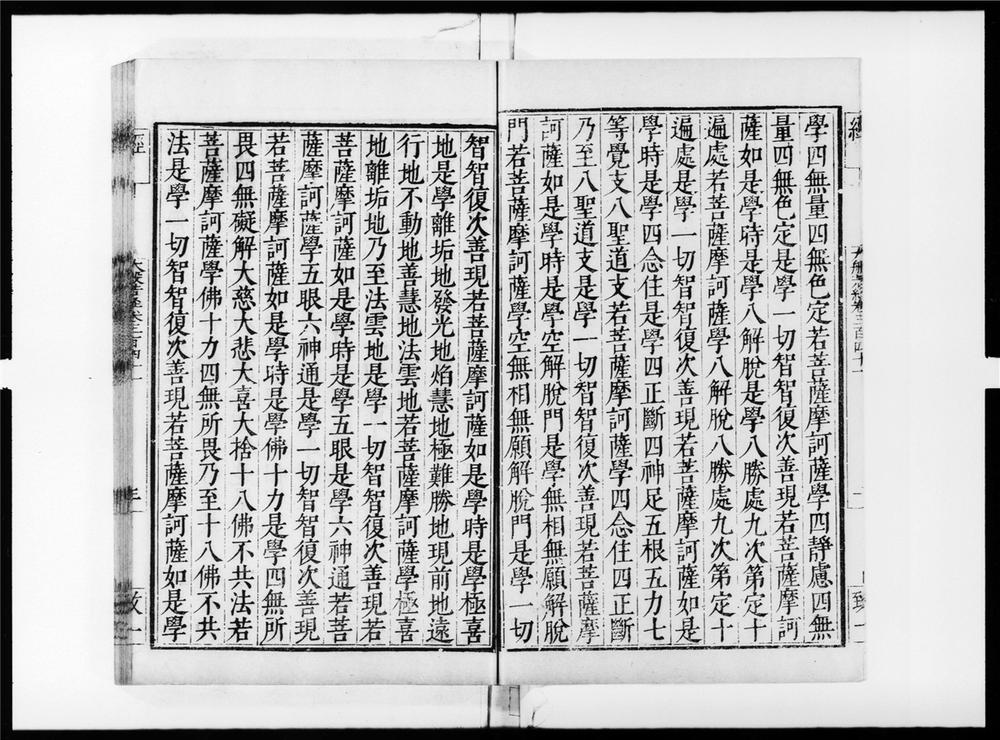 學四無量四無色定若菩薩摩訶薩學四靜慮四無
量四無色定是學一切智智復次善現若菩薩摩訶
薩如是學時是學八解脫是學八勝處九次第定十
遍處若菩薩摩訶薩學八解脫八勝處九次第定十
遍處是學一切智智復次善現若菩薩摩訶薩如是
學時是學四念住是學四正斷四神足五根五力七
等覺支八聖道支若菩薩摩訶薩學四念住四正斷
乃至八聖道支是學一切智智復次善現若菩薩摩
訶薩如是學時是學空解脫門是學無相無願解脫
門若菩薩摩訶薩學空無相無願解脫門是學一切
智智復次善現若菩薩摩訶薩如是學時是學極喜
地是學離垢地發光地焰慧地極難勝地現前地遠
行地不動地善慧地法雲地若菩薩摩訶薩學極喜
地離垢地乃至法雲地是學一切智智復次善現若
菩薩摩訶薩如是學時是學五眼是學六神通若菩
薩摩訶薩學五眼六神通是學一切智智復次善現
若菩薩摩訶薩如是學時是學佛十力是學四無所
畏四無礙解大慈大悲大喜大捨十八佛不共法若
菩薩摩訶薩學佛十力四無所畏乃至十八佛不共
法是學一切智智復次善現若菩薩摩訶薩如是學